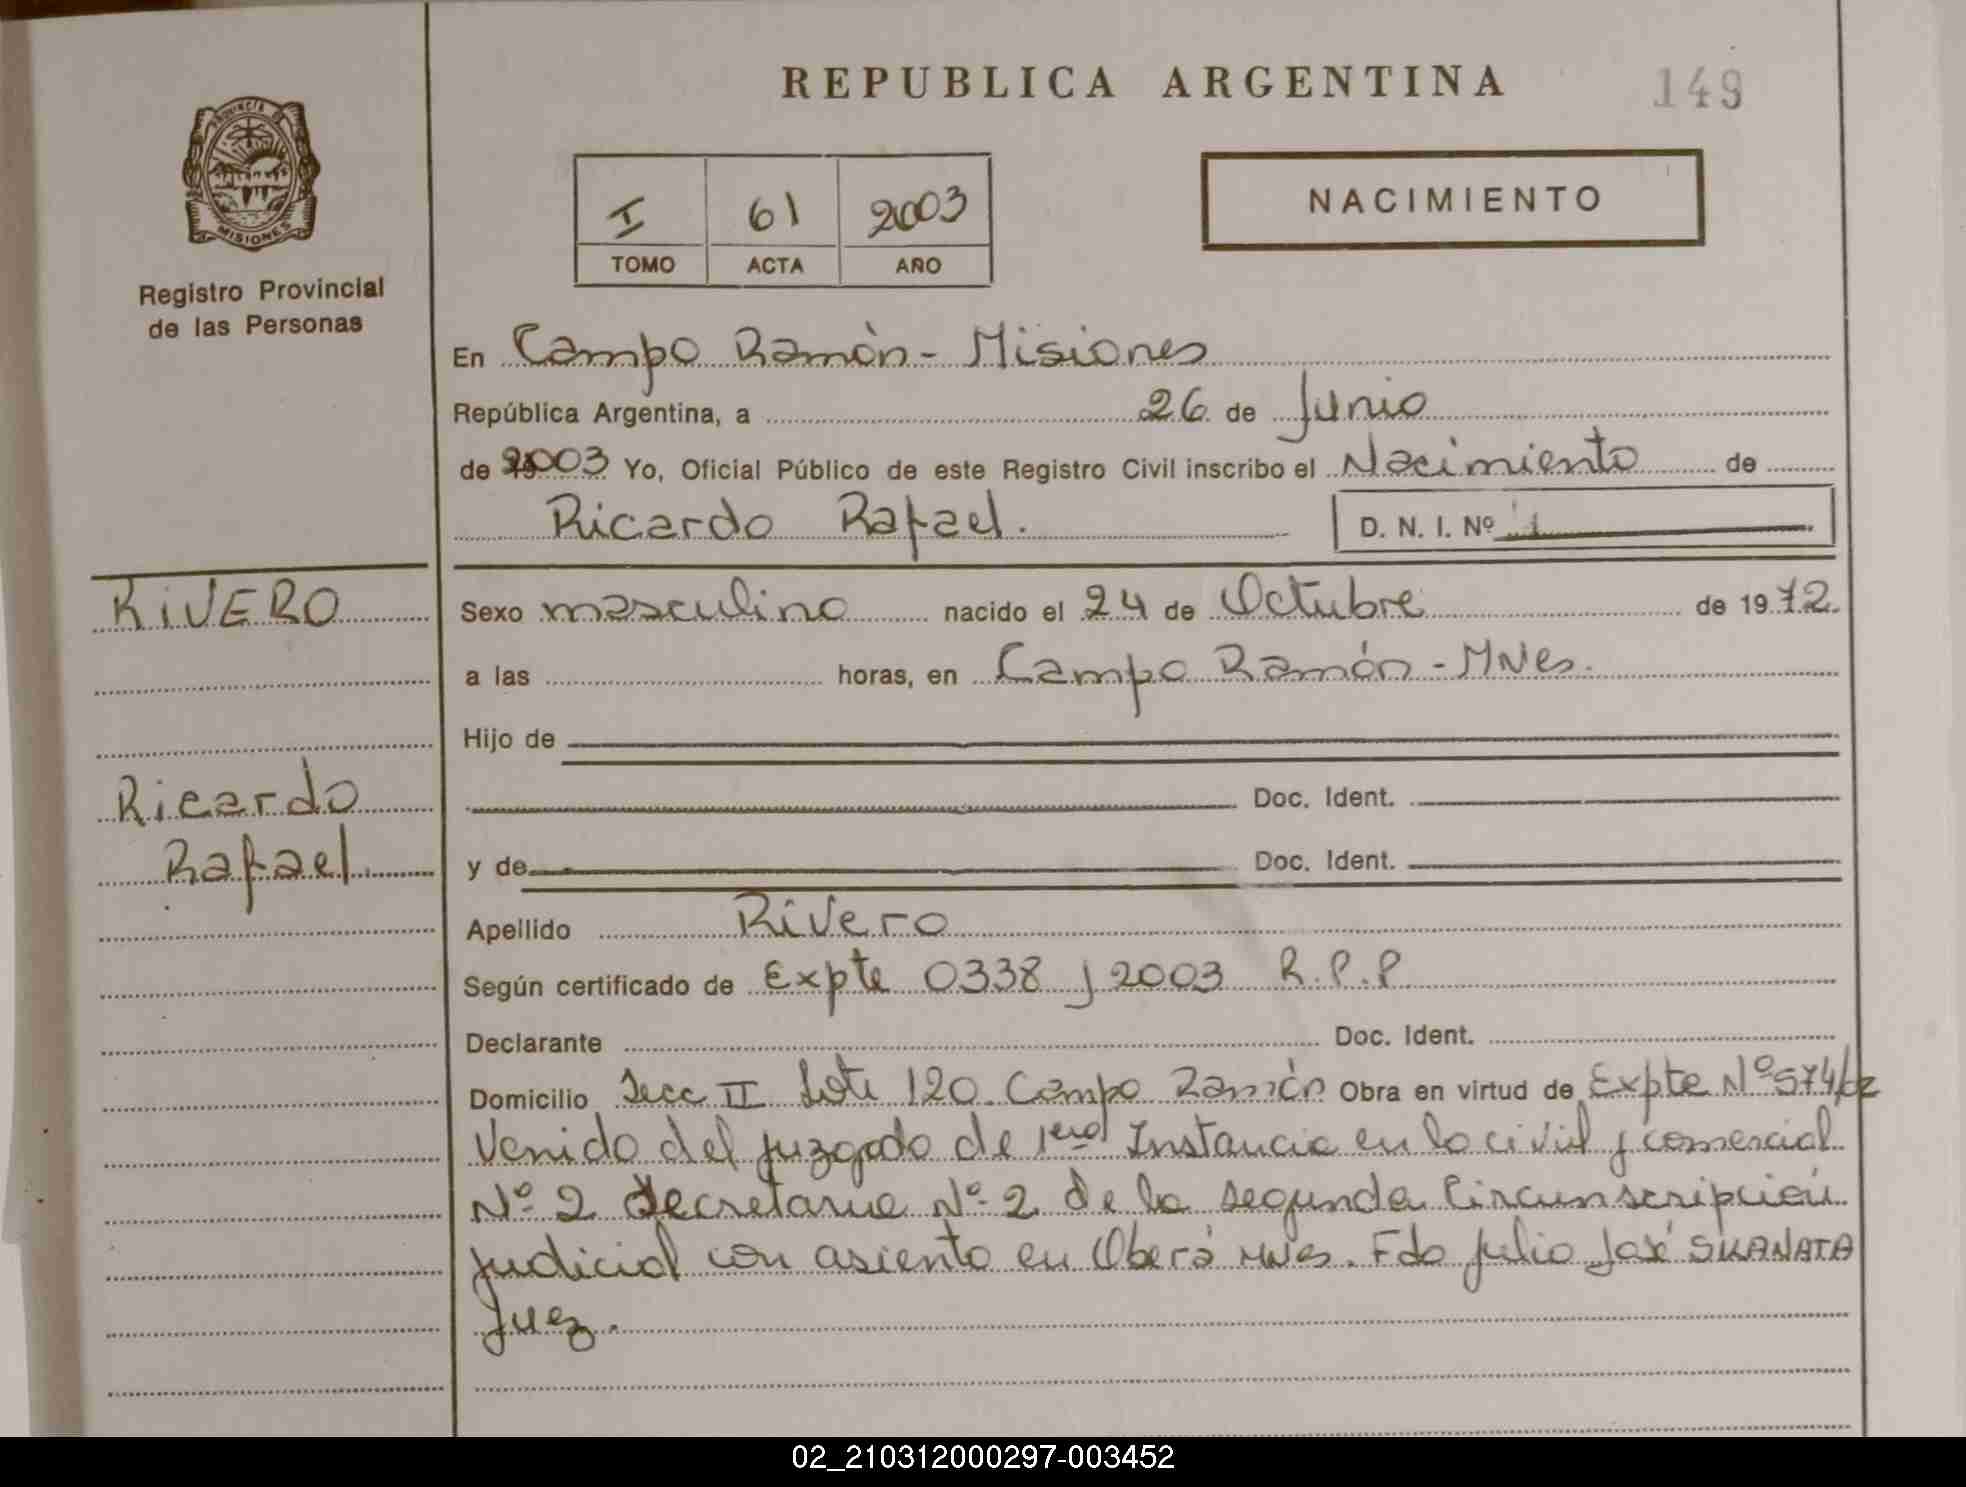 REPUBLICA ARGENTINA
149
PROVINCIA DE
MISIONES
Registro Provincial
de las Personas
I 61 2003
TOMO ACTA AÑO
NACIMIENTO
En Campo Ramón - Misiones
República Argentina, a 26 de Junio
de 2003 Yo, Oficial Público de este Registro Civil inscribo el Nacimiento de
Ricardo Rafael. D. N. I. Nº
RIVERO
Ricardo
Rafael.
Sexo masculino nacido el 24 de Octubre de 1972.
a las horas, en Campo Ramón - MNes.
Hijo de
Doc. Ident.
y de Doc. Ident.
Apellido Rivero
Según certificado de Expte 0338 / 2003 R.P.P
Declarante Doc. Ident.
Domicilio Secc II Lote 120 Campo Ramón Obra en virtud de Expte Nº 574/02
Venido del juzgado de 1era Instancia en lo civil y comercial
Nº 2 Secretaria Nº 2 de la segunda Circunscripción
judicial con asiento en Oberá MNes. Fdo Julio José SKANATA
Juez.
02_210312000297-003452